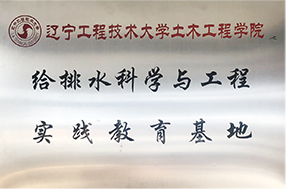 辽宁工程技术大学土木工程学院
给排水科学与工程
实践教育基地